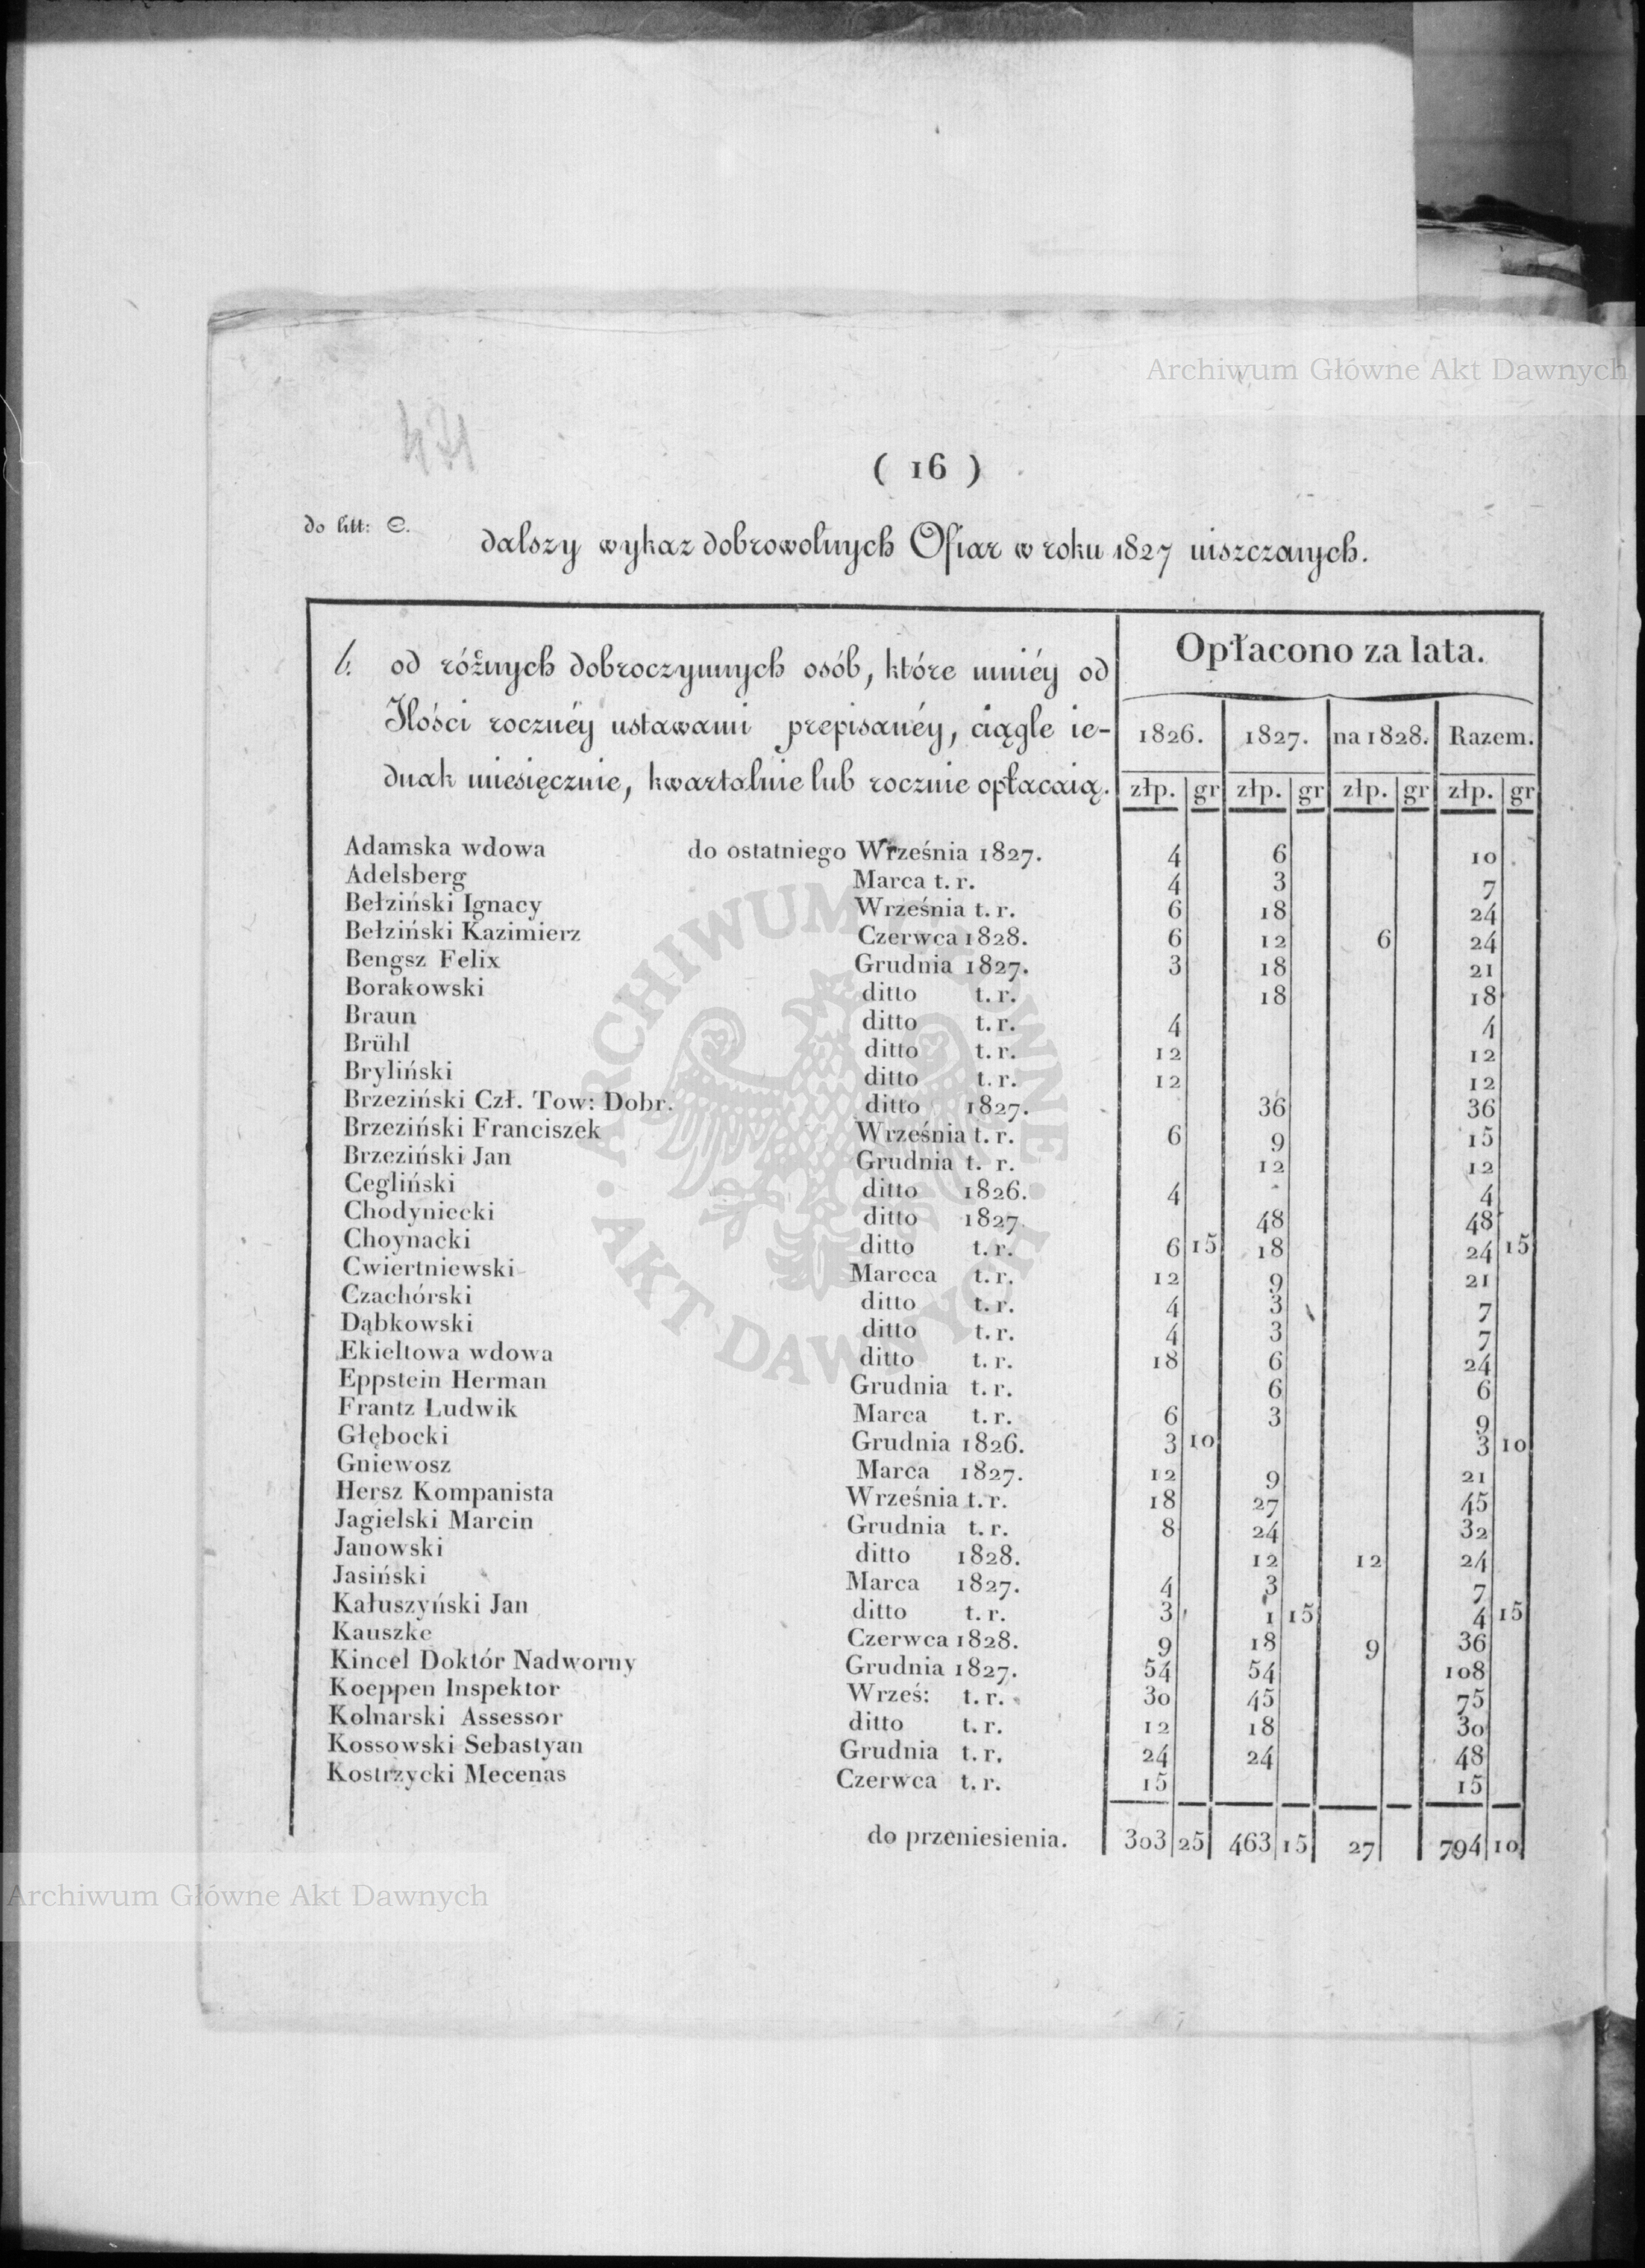 Archiwum Główne Akt Dawnych
471
( 16 )
do litt: C.
dalszy wykaz dobrowolnych Ofiar w roku 1827 uiszczanych.
b. od różnych dobroczynnych osób, które mniéy od
Ilości rocznéy ustawami prepisanéy, ciągle ie-
dnak miesięcznie, kwartalnie lub rocznie opłacaią.
Opłacono za lata.
1826. 1827. na 1828. Razem.
złp. gr złp. gr złp. gr złp. gr
Adamska wdowa do ostatniego Września 1827. 4 6 10
Adelsberg Marca t. r. 4 3 7
Bełziński Ignacy Września t. r. 6 18 24
Bełziński Kazimierz Czerwca 1828. 6 12 6 24
Bengsz Felix Grudnia 1827. 3 18 21
Borakowski ditto t. r. 18 18
Braun ditto t. r. 4 4
Brühl ditto t. r. 12 12
Bryliński ditto t. r. 12 12
Brzeziński Czł. Tow: Dobr. ditto 1827. 36 36
Brzeziński Franciszek Września t. r. 6 9 15
Brzeziński Jan Grudnia t. r. 12 12
Cegliński ditto 1826. 4 4
Chodyniecki ditto 1827. 48 48
Choynacki ditto t. r. 6 15 18 24 15
Cwiertniewski Marcca t. r. 12 9 21
Czachórski ditto t. r. 4 3 7
Dąbkowski ditto t. r. 4 3 7
Ekieltowa wdowa ditto t. r. 18 6 24
Eppstein Herman Grudnia t. r. 6 6
Frantz Ludwik Marca t. r. 6 3 9
Głębocki Grudnia 1826. 3 10 3 10
Gniewosz Marca 1827. 12 9 21
Hersz Kompanista Września t. r. 18 27 45
Jagielski Marcin Grudnia t. r. 8 24 32
Janowski ditto 1828. 12 12 24
Jasiński Marca 1827. 4 3 7
Kałuszyński Jan ditto t. r. 3 1 15 4 15
Kauszke Czerwca 1828. 9 18 9 36
Kincel Doktór Nadworny Grudnia 1827. 54 54 108
Koeppen Inspektor Wrześ: t. r. 30 45 75
Kolnarski Assessor ditto t. r. 12 18 30
Kossowski Sebastyan Grudnia t. r. 24 24 48
Kostrzycki Mecenas Czerwca t. r. 15 15
do przeniesienia. 303 25 463 15 27 794 10
ARCHIWUM GŁÓWNE AKT DAWNYCH
Archiwum Główne Akt Dawnych